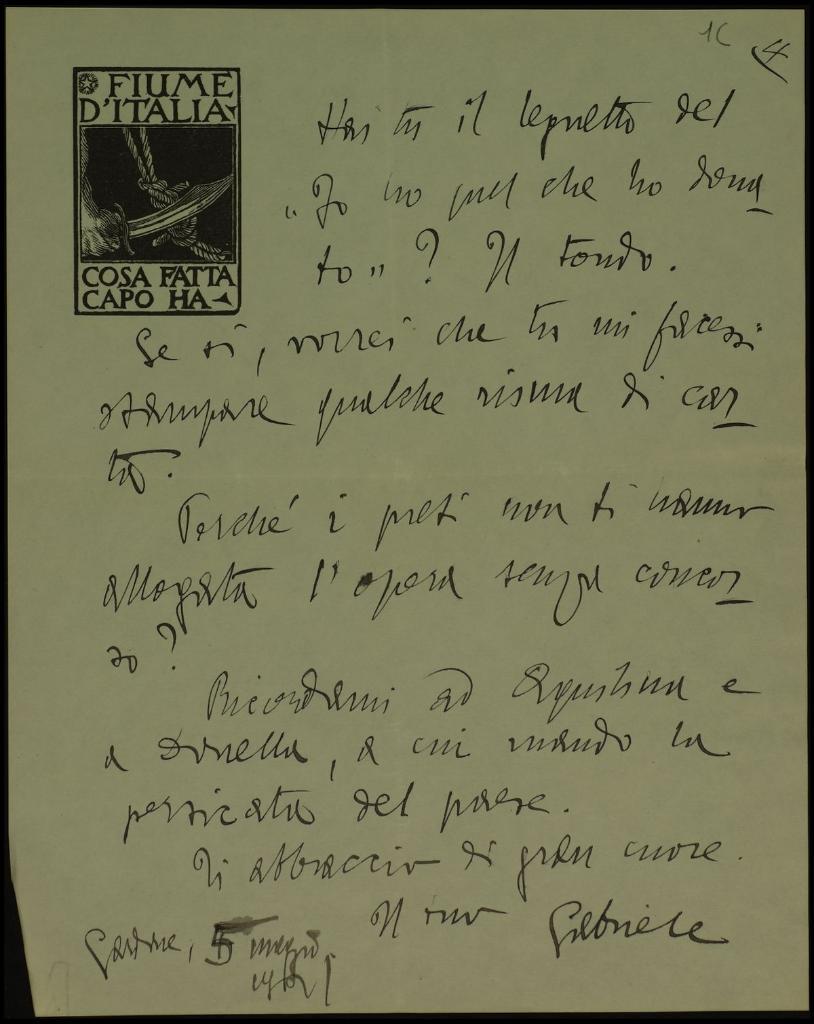 1C
4
FIUME
D'ITALIA
COSA FATTA
CAPO HA
Hai tu il legnetto del
"Io ho quel che ho dona
to„? Il tondo.
Se sì, vorrei che tu mi facessi
stampare qualche risma di car
ta.
Perché i preti non ti hanno
allogata l'opera senza concor
so?
Ricordami ad Agostina e
a Donella, a cui mando la
persicata del paese.
Ti abbraccio di gran cuore.
Il tuo Gabriele
Gardone, 5 maggio